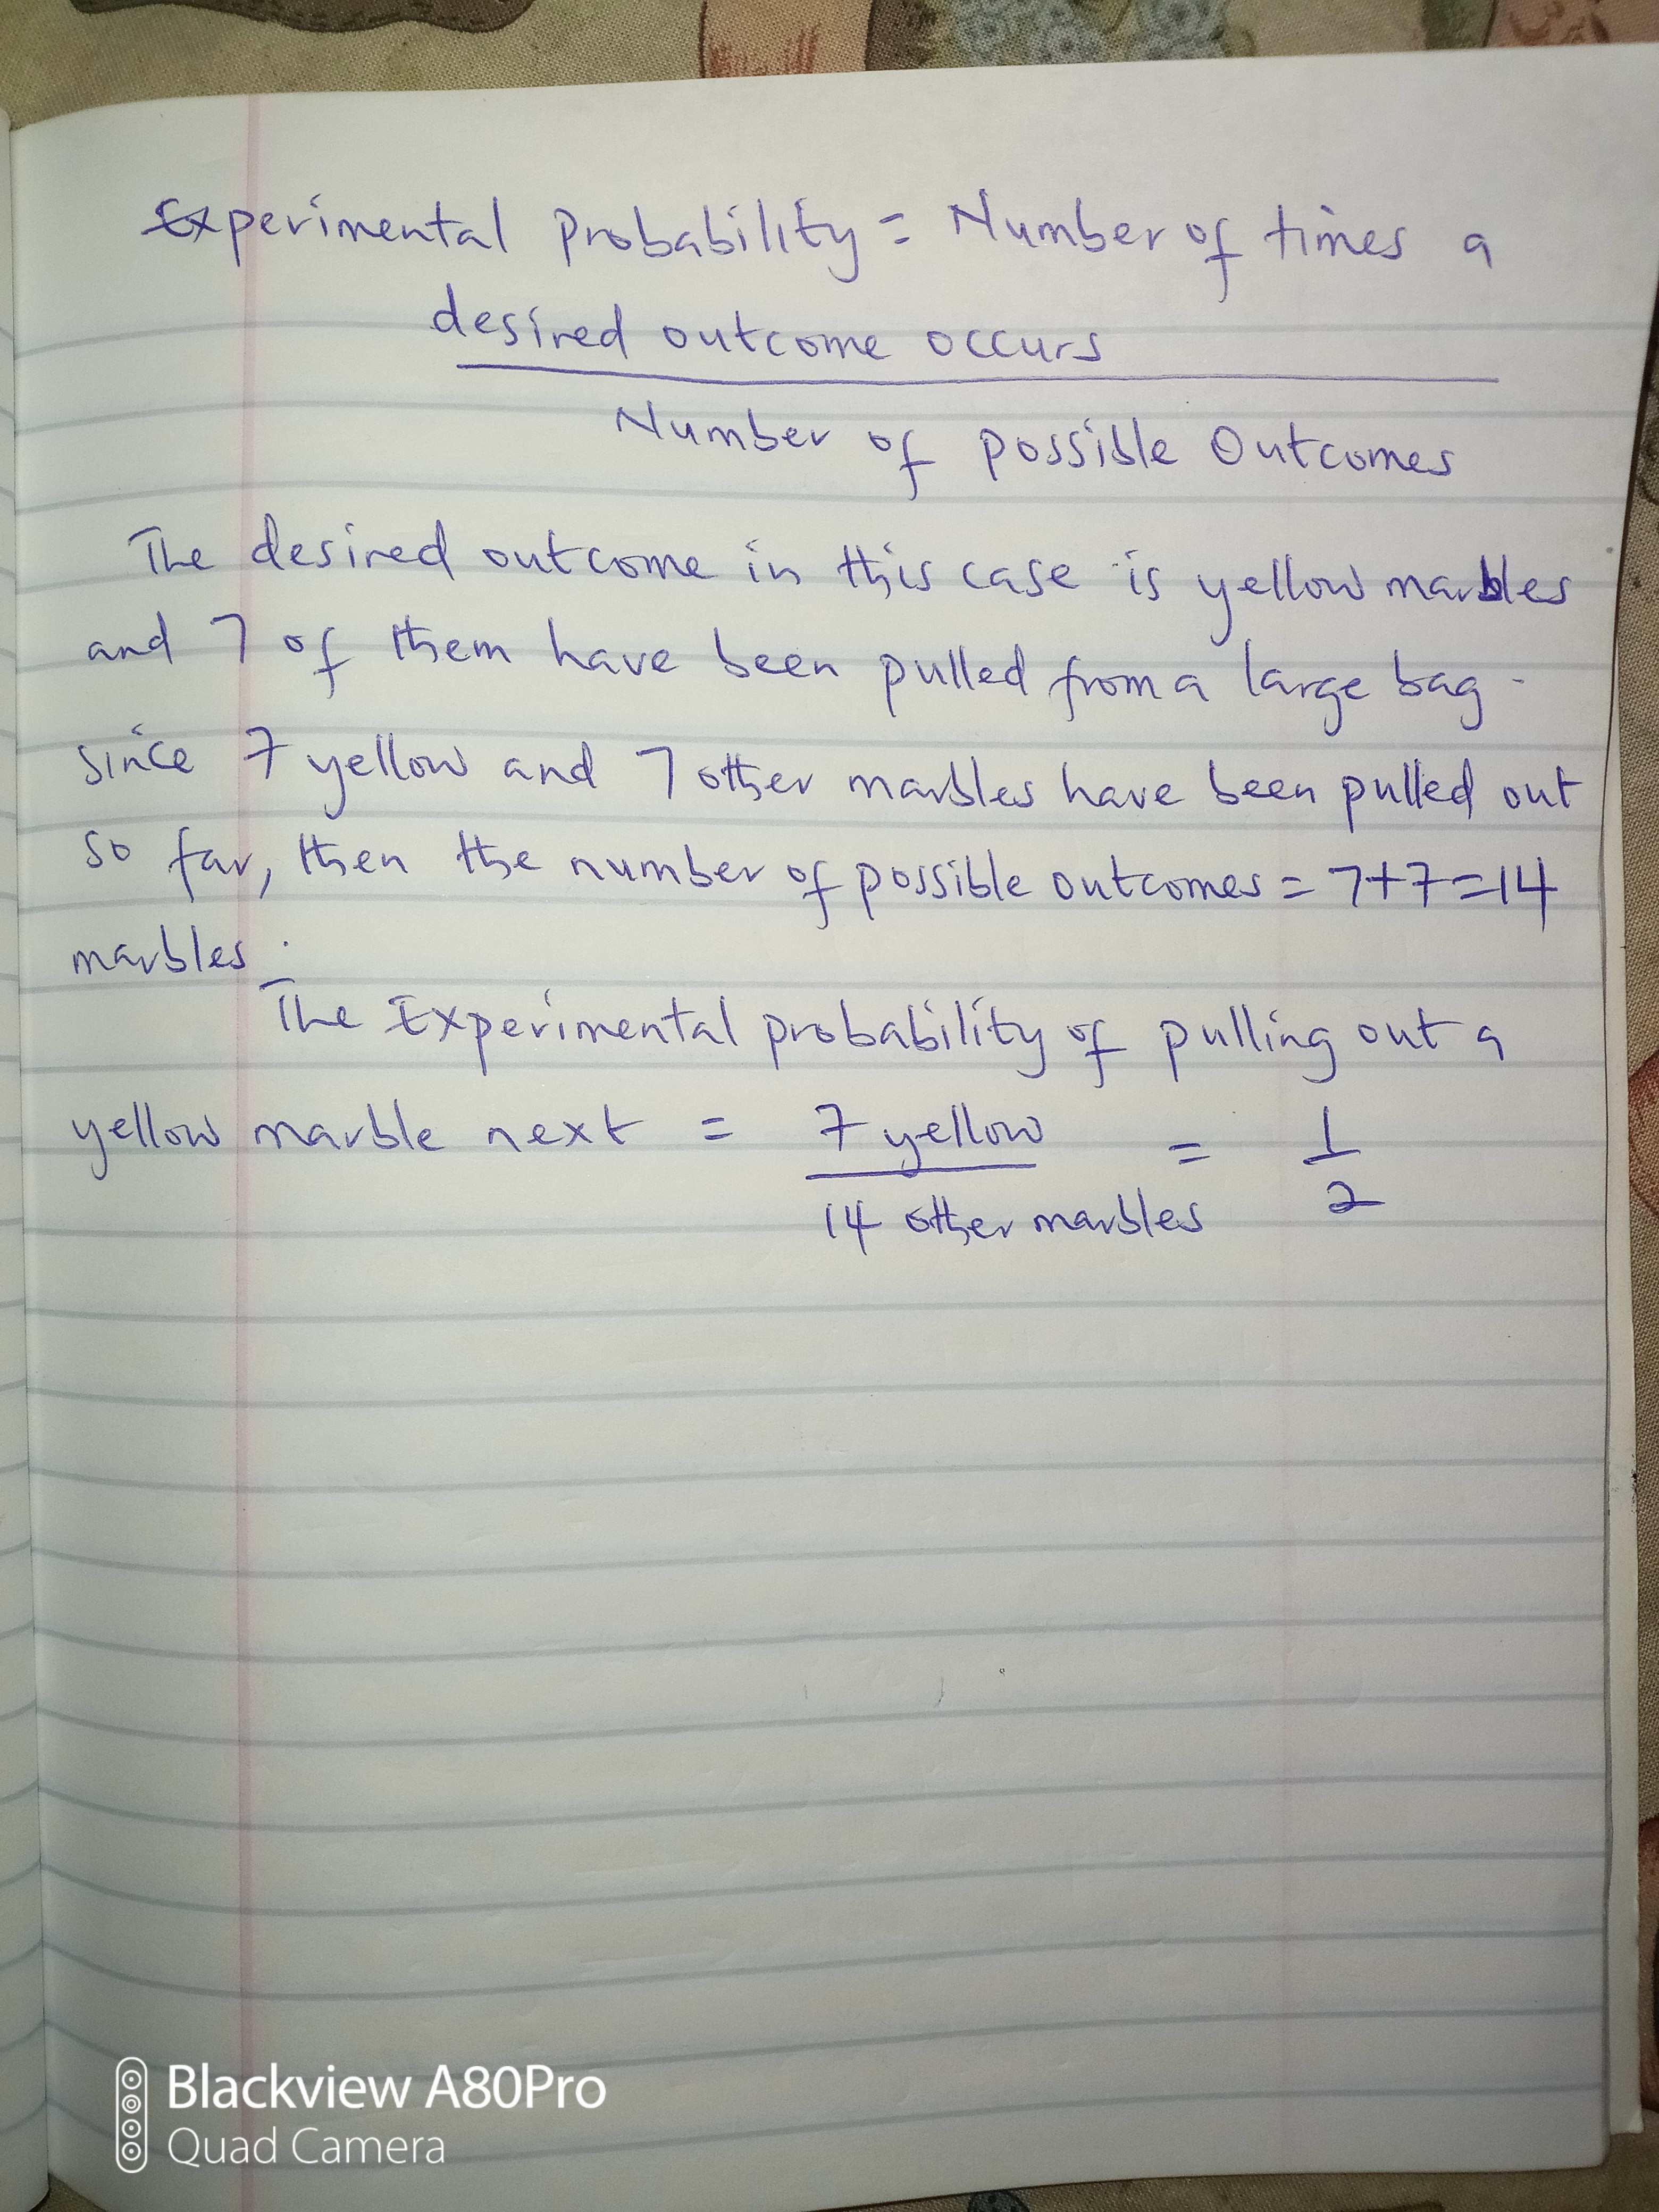 Experimental Probability = Number of times a
desired outcome occurs
Number of possible Outcomes
The desired outcome in this case is yellow marbles
and 7 of them have been pulled from a large bag.
since 7 yellow and 7 other marbles have been pulled out
so far, then the number of possible outcomes = 7+7=14
marbles.
The Experimental probability of pulling out a
yellow marble next = 7 yellow = 1
14 other marbles 2
Blackview A80Pro
Quad Camera